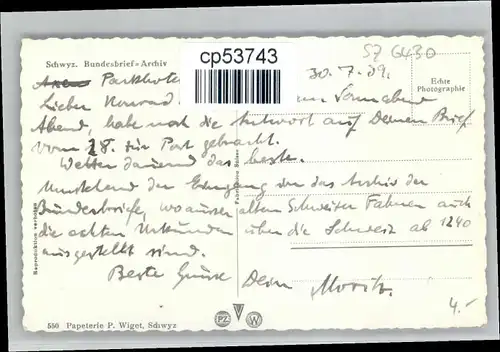 Schwyz. Bundesbrief-Archiv
cp53743
SZ 6430
Echte
Photographie
Parkhote
30.7.39.
Lieber Konrad. Sonnabend
Abend, habe noch die Antwort auf Deinen Brief
vom 28. zur Post gebracht.
Wetter dauernd das beste.
Umstehend der Eingang in das Archiv der
Bundesbriefe, wo ausser alten Schweizer Fahnen auch
die echten Urkunden über die Schweiz ab 1240
ausgestellt sind.
Beste Grüsse Dein Moritz.
4.-
Reproduktion verboten
PZ
W
550 Papeterie P. Wiget, Schwyz